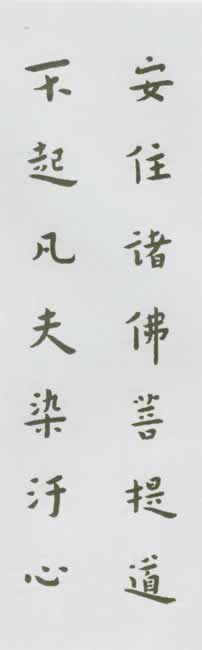 安住诸佛菩提道
不起凡夫染汙心